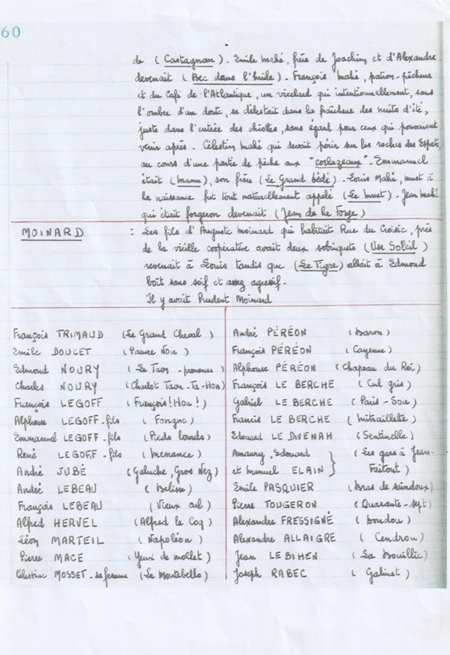 60
de (Castagnan). Emile Mahé, frère de Joachim et d'Alexandre
devenait (Bec dans l'huile). François Mahé, patron-pêcheur
et du Café de l'Atlantique, un vieillard qui intentionnellement, sans
l'ombre d'un doute, se délestait dans la fraîcheur des nuits d'été,
juste dans l'entrée des chiottes sans égard pour ceux qui pouvaient
venir après. Célestin Mahé qui devait périr sur les roches des
au cours d'une partie de pêche aux "corlazeaux". Emmanuel
était (Manu), son frère (Le Grand bédé). Louis Mahé, muet à
la naissance fut tout naturellement appelé (Le Muet). Jean Mahé
qui était forgeron devenait (Jean de la Forge)
MOINARD : Les fils d'Auguste Moinard qui habitait Rue du Croisic, près
de la vieille coopérative avait deux sobriquets (Use Soleil)
revenait à Louis tandis que (Le Tigre) allait à Edmond
boit sans soif et assez agressif.
Il y avait Prudent Moinard
François TRIMAUD (Le Grand Cheval)
Emile DOUCET
Edmond NOURY
Charles NOURY
François LEGOFF (François! Hou!)
Alphonse LEGOFF-fils
Emmanuel LEGOFF-fils (Pieds lourds)
René LEGOFF-fils
André JUBÉ (Galuche, Gros Nez)
André LEBEAU
François LEBEAU (Vieux cul)
Alfred HERVEL (Alfred le Coq)
Léon MARTEIL (Napoléon)
Pierre MACE (Yeux de mollet)
Célestine MOSSET-sa femme (La Montebello)
André PÉRÉON (Baron)
François PÉRÉON (Cayenne)
Alphonse PÉRÉON (Chapeau du Roi)
François LE BERCHE (Cul gris)
Gabriel LE BERCHE (Paris-Soir)
Francis LE BERCHE (Mitraillette)
Edouard LE DIVENAH (Sentinelle)
Amaury, Edouard (Les gars à Jean-
et Emmanuel ELAIN Faitout)
Emile PASQUIER (Bras de saindoux)
Pierre TOUGERON (Quarante-sept)
Alexandre FRESSIGNÉ (Doudou)
Alexandre ALLAIGRE (Cendrou)
Jean LEBIHEN (La Brouillie)
Joseph RABEC (Gabinet)